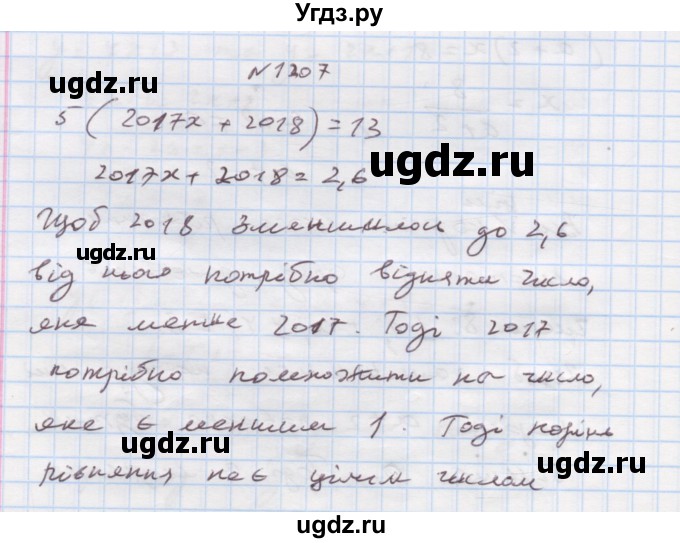 Угдз.ру
ugdz.ru
ugdz.ru
№1207
5(2017x+2018)=13
ugdz.ru
2017x+2018=2,6
Щоб 2018 зменшилось до 2,6
ugdz.ru
від нього потрібно відняти число,
яке менше 2017. Тоді 2017
ugdz.ru
ugdz.ru
потрібно помножити на число,
яке є меншим 1. Тоді корінь
ugdz.ru
ugdz.ru
рівняння не є цілим числом
ugdz.ru